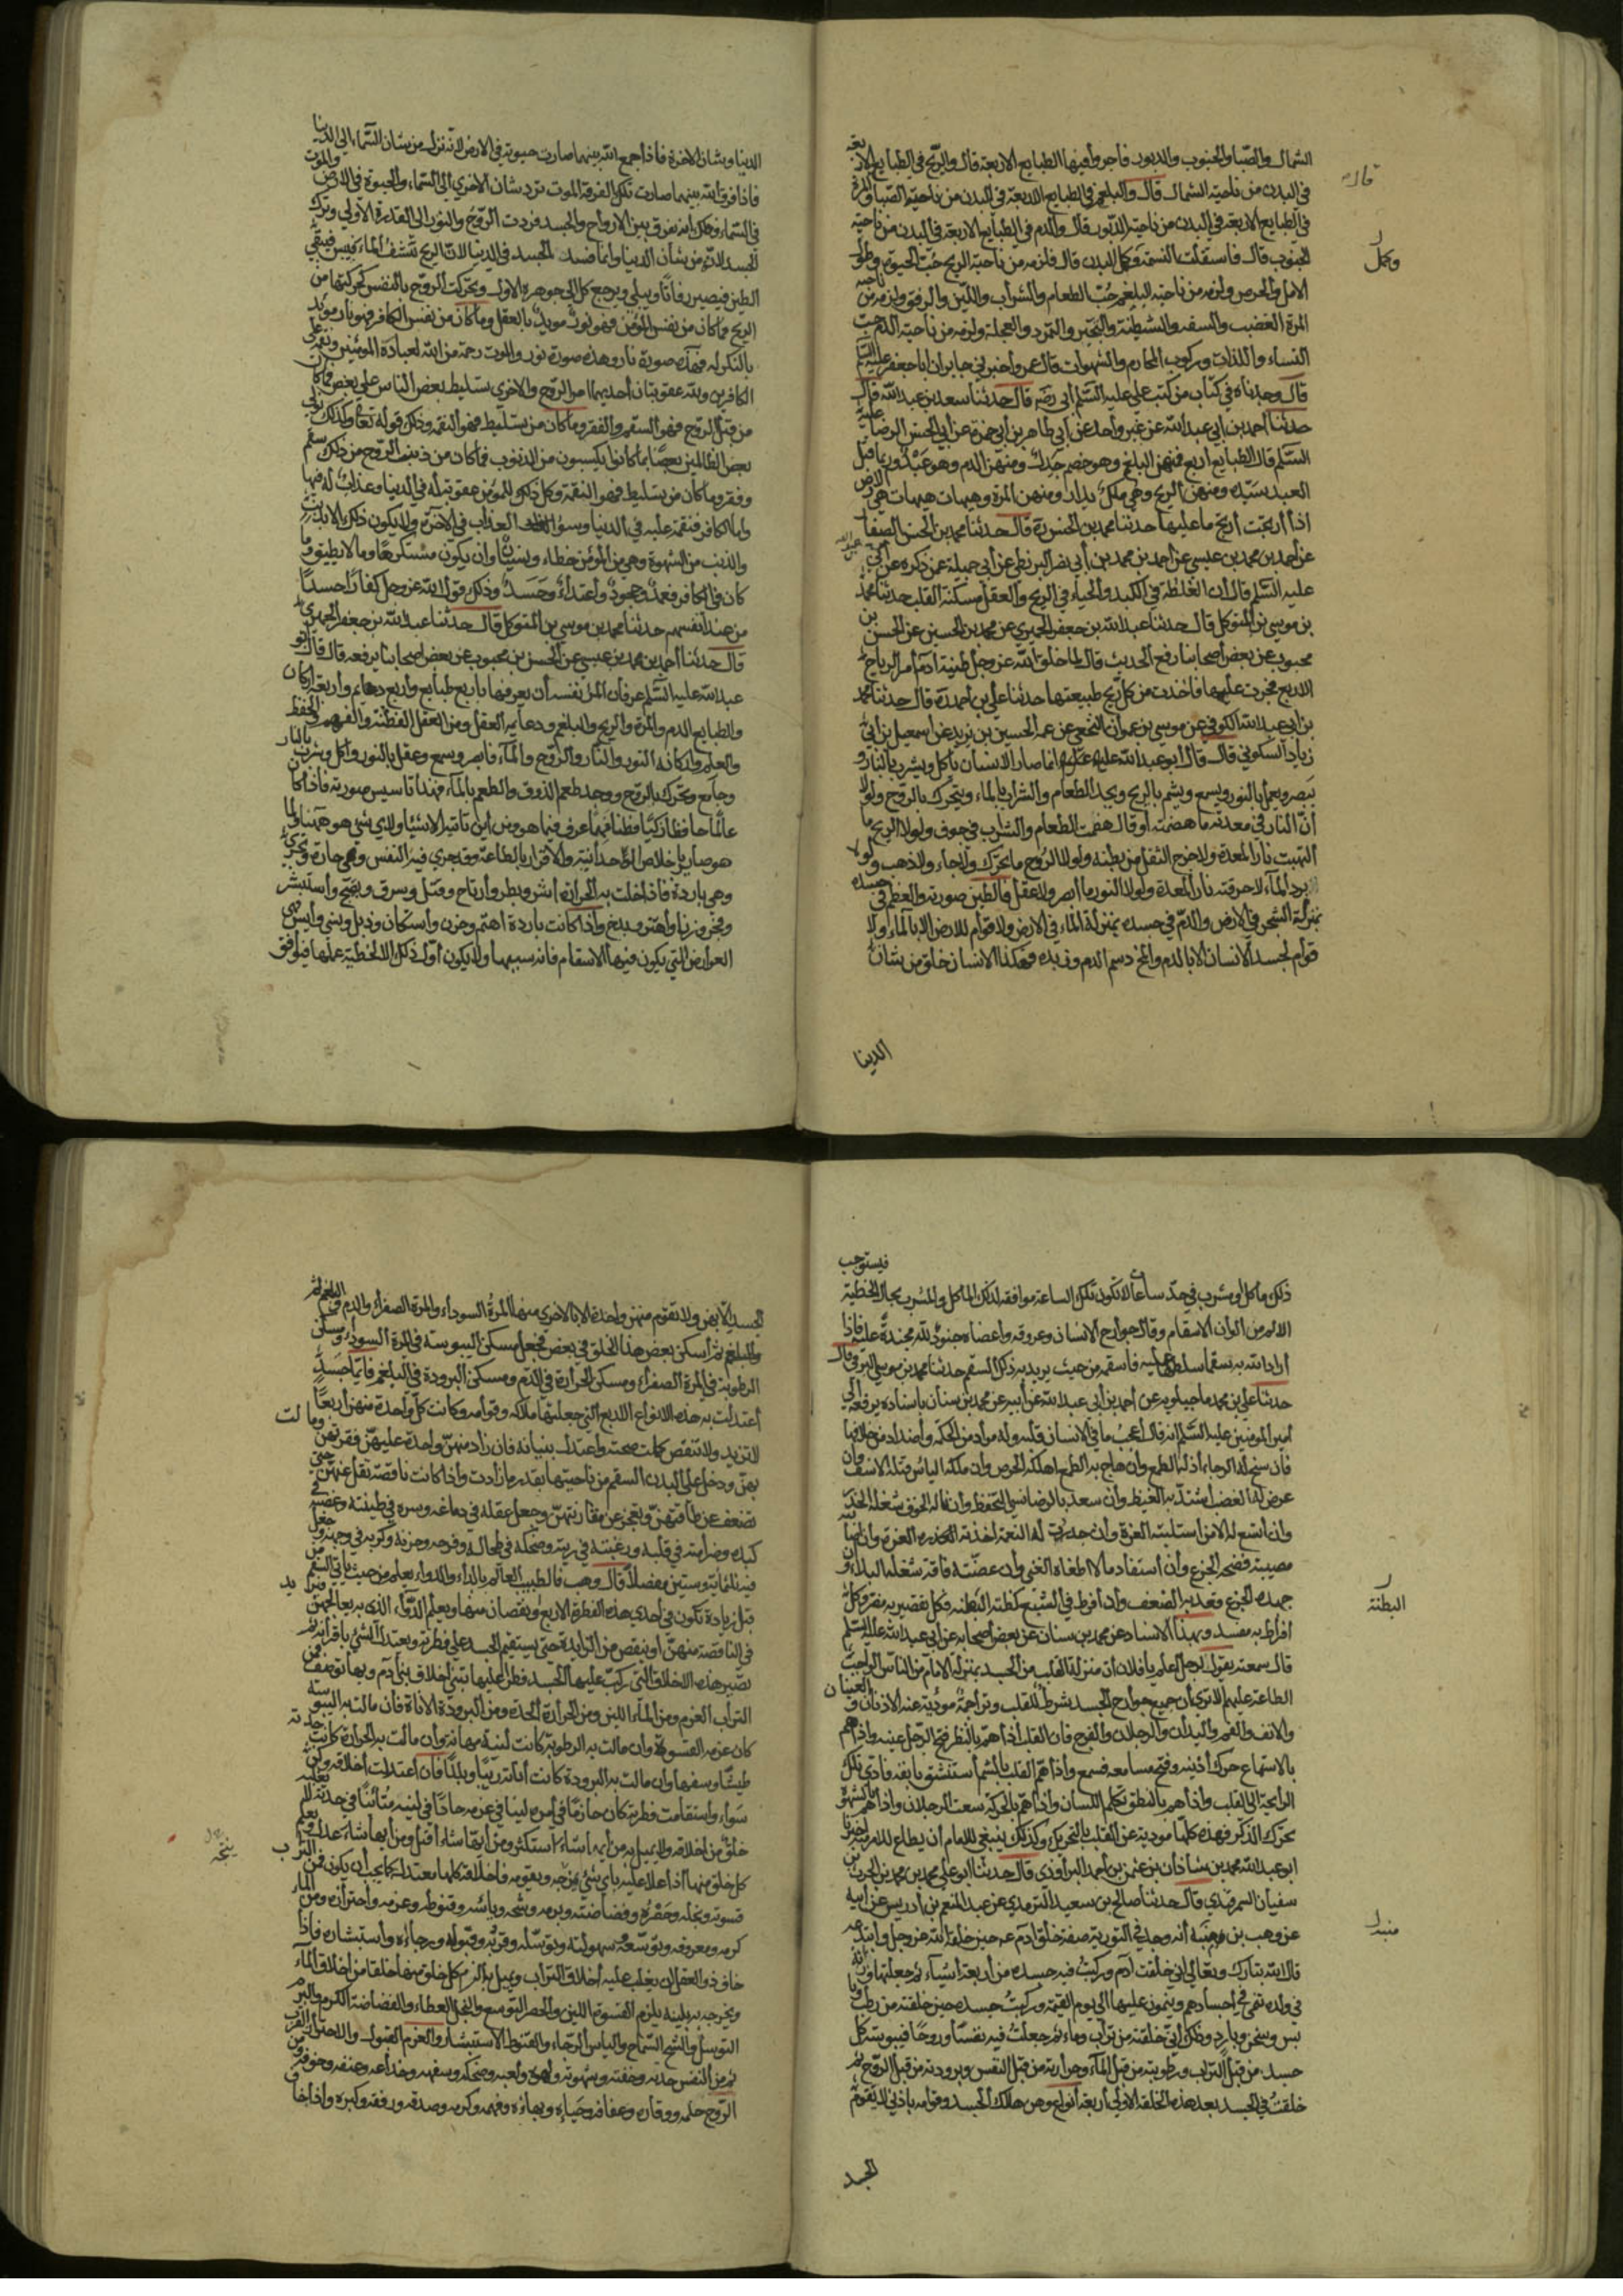 الشمال والصبا والجنوب والدبور فاجروا فيها الطبايع الاربعة قال والريح في الطبايع الاربعة
في البدن من ناحية الشمال قال والبلغم في الطبايع الاربعة في البدن من ناحية الصبا والمرة
في الطبايع الاربعة في البدن من ناحية الدبور قال والدم في الطبايع الاربعة في البدن من ناحية
الجنوب قال فاستقلت النسمة وكمل البدن قال فلزمه من ناحية الريح حب الحيوة وطول
الامل والحرص ولزمه من ناحية البلغم حب الطعام والشراب واللين والرفق ولزمه من ناحية
المرة الغضب والسفه والشيطنة والتجبر والتمرد والعجلة ولزمه من ناحية الدم حب
النساء واللذات وركوب المحارم والشهوات قال عمرو اخبرني جابر ان ابا جعفر عليه السلام
قال وجدناه في كتاب من كتب علي عليه السلم ابي رضه قال حدثنا سعد بن عبد الله قال
حدثنا احمد بن ابي عبد الله عن غير واحد عن ابي طاهر بن ابي حمزة عن ابي الحسن الرضا عليه
السلم قال الطبايع اربع فمنهن البلغم وهو خصم جدل ومنهن الدم وهو عبد وربما قتل
العبد سيده ومنهن الريح وهي ملك يدارا ومنهن المرة وهيهات هيهات هي الارض
اذا ارتجت ارتج ما عليها حدثنا محمد بن الحسن ره قال حدثنا محمد بن الحسن الصفار
عن احمد بن محمد بن عيسى عن احمد بن محمد بن ابي نصر البزنطي عن ابي جميلة عمن ذكره عن ابي
عليه السلم قال ان الغلظة في الكبد والحياء في الريح والعقل مسكنه القلب حدثنا محمد
بن موسى بن المتوكل قال حدثنا عبد الله بن جعفر الحميري عن محمد بن الحسين عن الحسن بن
محبوب عن بعض اصحابنا رفع الحديث قال لما خلق الله عز وجل طينة ادم امر الرياح
الاربع فجرت عليها فاخذت من كل ريح طبيعتها حدثنا علي بن احمد ره قال حدثنا محمد
بن ابي عبد الله الكوفي عن موسى بن عمران النخعي عن عمه الحسين بن يزيد عن اسمعيل بن ابي
زياد السكوني قال قال ابو عبد الله عليه السلم انما صار الانسان ياكل ويشرب بالنار و
يبصر ويعمل بالنور ويسمع ويشم بالريح ويجد الطعام والشراب بالماء ويتحرك بالروح ولولا
ان النار في معدته ما هضمت او قال هضمت الطعام والشراب في جوفه ولولا الريح ما
التهبت نار المعدة ولا خرج الثفل من بطنه ولولا الروح ما تحرك ولا جاء ولا ذهب ولولا
برد الماء لاحرقته نار المعدة ولولا النور ما ابصر ولا عقل فالطين صورته والعظم في جسده
بمنزلة الشجر في الارض والدم في جسده بمنزلة الماء في الارض ولا قوام للارض الا بالماء ولا
قوام لجسد الانسان الا بالدم والمخ دسم الدم وزبده فهكذا الانسان خلق من شان
الدنيا
وكمل
الدنيا وشان الاخرة فاذا جمع الله بينهما صارت حيوته في الارض لانه نزل من شان السماء الى الدنيا
فاذا فرق الله بينهما صارت تلك الفرقة الموت ترد شان الاخرى الى السماء فالحيوة في الارض والموت
في السماء وذلك انه يفرق بين الارواح والجسد فردت الروح والنور الى القدرة الاولى وترك
الجسد لانه من شان الدنيا وانما فسد الجسد في الدنيا لان الريح تنشف الماء فييبس فيبقى
الطين فيصير رفاتا ويبلى ويرجع كل الى جوهره الاول وتحركت الروح بالنفس كحركتها من
الريح فما كان من نفس المؤمن فهو نور مويد بالعقل وما كان من نفس الكافر فهو نار مويد
بالنكراء فهذه صورة نار وهذه صورة نور والموت رحمة من الله لعباده المومنين ونقمة على
الكافرين ولله عقوبتان احديهما امر الروح والاخرى تسليط بعض الناس على بعض فما كان
من قبل الروح فهو السقم والفقر وما كان من تسليط فهو النقمة وذلك قوله تعالى وكذلك نولي
بعض الظالمين بعضا بما كانوا يكسبون من الذنوب فما كان من ذنب الروح من ذلك سقم
وفقر وما كان من تسليط فهو النقمة وكل ذلك للمؤمن عقوبة له في الدنيا وعذاب له فيها
واما الكافر فنقمة عليه في الدنيا وسوء العذاب في الاخرة ولا يكون ذلك الا بذنب
والذنب من الشهوة وهي من المؤمن خطاء ونسيان وان يكون مستكرها وما لا يطيق وما
كان في الكافر فعمد وجحود واعتداء وحسد وذلك قول الله عز وجل كفارا حسدا
من عند انفسهم حدثنا محمد بن موسى بن المتوكل قال حدثنا عبد الله بن جعفر الحميري
قال حدثنا احمد بن محمد بن عيسى عن الحسن بن محبوب عن بعض اصحابنا يرفعه قال قال ابو
عبد الله عليه السلم عرفان المرء نفسه ان يعرفها باربع طبايع واربع دعائم واربعة اركان
والطبايع الدم والمرة والريح والبلغم ودعايمه العقل ومن العقل الفطنة والفهم والحفظ
والعلم واركانه النور والنار والروح والماء فابصر وسمع وعقل بالنور واكل وشرب بالنار
وجامع وتحرك بالروح ووجد طعم الذوق والطعم بالماء فهذا تاسيس صورته فاذا كان
عالما حافظا زكيا فطنا فهما عرف فيما هو ومن اين تاتيه الاشياء ولاي شي هو ههنا ولما
هو صاير باخلاص الوحدانية والاقرار بالطاعة وقد جري فيه النفس وهي حارة وتجري
وهي باردة فاذا حلت به الحرارة اشر وبطر وارتاح وقتل وسرق وبهج واستبشر
وفجر وزنا واهتز وبذخ واذا كانت باردة اهتم وحزن واستكان وذبل ونسي وايس فهي
العوارض التي يكون فيها الاسقام فانه سبيلها ولا يكون اول ذلك الا لخطيئة عملها فيوافق
ذلك ماكل او مشرب في حد ساعات لا تكون تلك الساعة موافقة لذلك الماكل والمشرب بحال الخطيئة فيستوجب
الالم من الوان الاسقام وقال جوارح الانسان وعروقه واعضاه جنود لله مجندة عليه فاذا
اراد الله به سقما سلطها عليه فاسقمه من حيث يريد به ذلك السقم حدثنا محمد بن موسى البرقي قال
حدثنا علي بن محمد ماجيلويه عن احمد بن ابي عبد الله عن ابيه عن محمد بن سنان باسناده يرفعه الى
امير المومنين عليه السلم انه قال اعجب ما في الانسان قلبه وله مواد من الحكمة واضداد من خلافها
فان سنح له الرجاء اذله الطمع وان هاج به الطمع اهلكه الحرص وان ملكه الياس قتله الاسف وان
عرض له الغضب اشتد به الغيظ وان سعد بالرضا نسي التحفظ وان ناله الخوف شغله الحذر
وان اتسع له الامن استلبته الغرة وان جددت له النعمة اخذته العزة وان اصابته
مصيبة فضحه الجزع وان استفاد مالا اطغاه الغنى وان عضته فاقة شغله البلاء وان
جهده الجوع قعد به الضعف وان افرط في الشبع كظته البطنة فكل تقصير به مضر وكل
افراط به مفسد وبهذا الاسناد عن محمد بن سنان عن بعض اصحابه عن ابي عبد الله عليه السلم
قال سمعته يقول لرجل اعلم يا فلان ان منزلة القلب من الجسد بمنزلة الامام من الناس الواجب
الطاعة عليهم الا ترى ان جميع جوارح الجسد شرط للقلب وتراجمة مؤدية عنه الاذنان والعينان
والانف والفم واليدان والرجلان والفرج فان القلب اذا هم بالنظر فتح الرجل عينيه واذا هم
بالاستماع حرك اذنيه وفتح مسامعه فسمع واذا هم القلب بالشم استنشق بانفه فادى تلك
الرايحة الى القلب واذا هم بالنطق تكلم اللسان واذا هم بالحركة سعت الرجلان واذا هم بالشهوة
تحرك الذكر فهذه كلها مودية عن القلب بالتحريك وكذلك ينبغي للامام ان يطاع للامر منه اخبرنا
ابو عبد الله محمد بن شاذان بن عثمن بن احمد البراوذي قال حدثنا ابو علي محمد بن محمد بن الحرث بن
سفيان السمرقندي قال حدثنا صالح بن سعيد الترمذي عن عبد المنعم بن ادريس عن ابيه
عن وهب بن منبه انه وجد في التورية صفة خلق ادم عم حين خلقه الله عز وجل وابتدعه
قال الله تبارك وتعالى اني خلقت آدم وركبت جسده من اربعة اشياء ثم جعلتها وراثة
في ولده تنمي في اجسادهم وينمون عليها الى يوم القيمة وركبت جسده حين خلقته من رطب و
يبس وسخن وبارد وذلك اني خلقته من تراب وماء ثم جعلت فيه نفسا وروحا فيبوسة كل
جسد من قبل التراب ورطوبته من قبل الماء وحرارته من قبل النفس وبرودته من قبل الروح ثم
خلقت في الجسد بعد هذه الخلقة الاولى اربعة انواع وهن ملاك الجسد وقوامه باذني لا يقوم
الجسد
البطنة
الجسد الا بهن ولا تقوم منهن واحدة الا بالاخرى منها المرة السوداء والمرة الصفراء والدم
والبلغم ثم اسكن بعض هذا الخلق في بعض فجعل مسكن اليبوسة في المرة السوداء ومسكن
الرطوبة في المرة الصفراء ومسكن الحرارة في الدم ومسكن البرودة في البلغم فايما جسد
اعتدلت به هذه الانواع الاربع التي جعلتها ملاكه وقوامه وكانت كل واحدة منهن اربعا
لا تزيد ولا تنقص كملت صحته واعتدل بنيانه فان زاد منهن واحدة عليهن فقهرتهن ومالت
بهن ودخل على البدن السقم من ناحيتها بقدر ما زادت واذا كانت ناقصة تقل عنهن حتى
تضعف عن طاقتهن وتعجز عن مقارنتهن وجعل عقله في دماغه وسره في طينته وغضبه في
كبده وصرامته في قلبه ورغبته في ريته وضحكه في طحاله وفرحه وحزنه وكربه في وجهه وجعل
فيه ثلثماية وستين مفصلا قال وهب فالطبيب العالم بالداء والدواء يعلم من حيث ياتي السقم من
قبل زيادة تكون في احدى هذه الفطرة الاربع او نقصان منها ويعلم الدواء الذي به يعالجهن فيزيد
في الناقصة منهن او ينقص من الزايدة حتى يستقيم الجسد على فطرته ويعتدل الشي باقرانه ثم
تصير هذه الاخلاق التي ركب عليها الجسد فطرا عليها تبنى اخلاق بني آدم وبها توصف فمن
التراب العزم ومن الماء اللين ومن الحرارة الحدة ومن البرودة الاناة فان مالت به اليبوسة
كان عزمه القسوة وان مالت به الرطوبة كانت لينه مهانة وان مالت به الحرارة كانت حدته
طيشا وسفها وان مالت به البرودة كانت اناته ريبا وبلدا فان اعتدلت اخلاقه وكن
سواء واستقامت فطرته كان حازما في امره لينا في عزمه حادا في لينه متانيا في حدته لا يغلبه
خلق من اخلاقه ولا يميل به من ايها شاء استكثر ومن ايها شاء اقل ومن ايها شاء عدل ويعلم
كل خلق منها اذا علا عليه باي شي يمزجه ويقومه فاخلاقه كلها معتدلة كما يجب ان يكون فمن التراب
قسوته وبخله وحصره وفضاضته وبرمه وشحه وياسه وقنوطه وعزمه واحترازه ومن الماء
كرمه ومعروفه وتوسعه وسهولته وتوسله وقربه وقبوله ورجاءه واستبشاره فاذا
خاف ذو العقل ان يغلب عليه اخلاق التراب ويميل به الزم كل خلق منها خلقا من اخلاق الماء
ويخرجه به بلينه يلزم القسوة اللين والحصر التوسع والبخل العطاء والفضاضة الكرم والبرم
التوسل والشح السماح والياس الرجاء والقنوط الاستبشار والعزم القبول والاحتراز القرب
ثم من النفس حدته وخفته وشهوته ولهوه ولعبه وضحكه وسفهه وخداعه وعنفه وخوفه ومن
الروح حلمه ووقاره وعفافه وحياءه وبهاءه وفهمه وكرمه وصدقه ورفقه وكبره واذا خاف